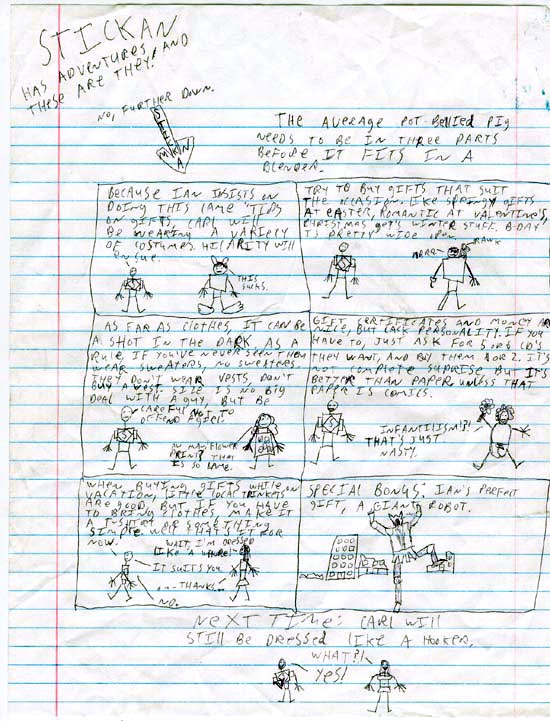 STICKAN
HAS ADVENTURES, AND
THESE ARE THEY!
NO, FURTHER DOWN.
STICKMAN
THE AVERAGE POT-BELLIED PIG
NEEDS TO BE IN THREE PARTS
BEFORE IT FITS IN A
BLENDER.
BECAUSE IAN INSISTS ON
DOING THIS LAME "TIPS
ON GIFTS, CARL WILL
BE WEARING A VARIETY
OF COSTUMES. HILARITY WILL
ENSUE.
THIS
SUCKS.
TRY TO BUY GIFTS THAT SUIT
THE OCCASION. LIKE SPRINGY GIFTS
AT EASTER, ROMANTIC AT VALENTINE'S,
CHRISTMAS GETS WINTER STUFF. B-DAY
IS PRETTY WIDE OPEN.
ARRR
RAWK
AS FAR AS CLOTHES, IT CAN BE
A SHOT IN THE DARK. AS A
RULE, IF YOU'VE NEVER SEEN THEM
WEAR SWEATERS, NO SWEATERS.
THEY DON'T WEAR VESTS, DON'T
BUY A VEST. SIZE IS NO BIG
DEAL WITH A GUY, BUT BE
CAREFUL NOT TO
OFFEND A GIRL.
FLOWER
PRINT? THAT
IS SO LAME.
GIFT CERTIFICATES AND MONEY ARE
NICE, BUT LACK PERSONALITY. IF YOU
HAVE TO, JUST ASK FOR 5 OR 6 CD'S
THEY WANT, AND BUY THEM 1 OR 2. IT'S
NOT COMPLETE SUPRISE BUT IT'S
BETTER THAN PAPER UNLESS THAT
PAPER IS COMICS.
INFANTILISM?!
THAT'S JUST
NASTY.
WHEN BUYING GIFTS WHILE ON
VACATION, LITTLE LOCAL TRINKETS
ARE GOOD, BUT IF YOU HAVE
TO BRING CLOTHES MAKE IT
A T-SHIRT OR SOMETHING
SIMPLE. WELL THAT'S IT FOR
NOW.
WAIT, I'M DRESSED
LIKE A WHORE!
IT SUITS YOU.
...THANKS...
NO.
SPECIAL BONUS: IAN'S PERFECT
GIFT, A GIANT ROBOT.
NEXT TIME: CARL WILL
STILL BE DRESSED LIKE A HOOKER.
WHAT?!
YES!